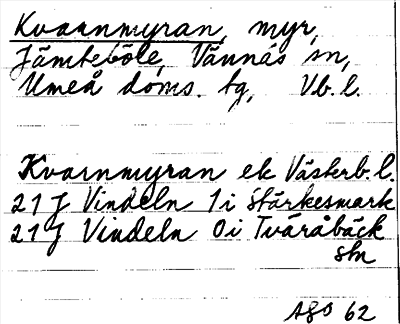 Kvarnmyran, myr,
Jämteböle, Vännäs sn,
Umeå doms. tg, Vb. l.
Kvarnmyran ek Västerb. l.
21 J Vindeln 1 i Stärkesmark
21 J Vindeln 0 i Tväråbäck
sbn
ASO 62